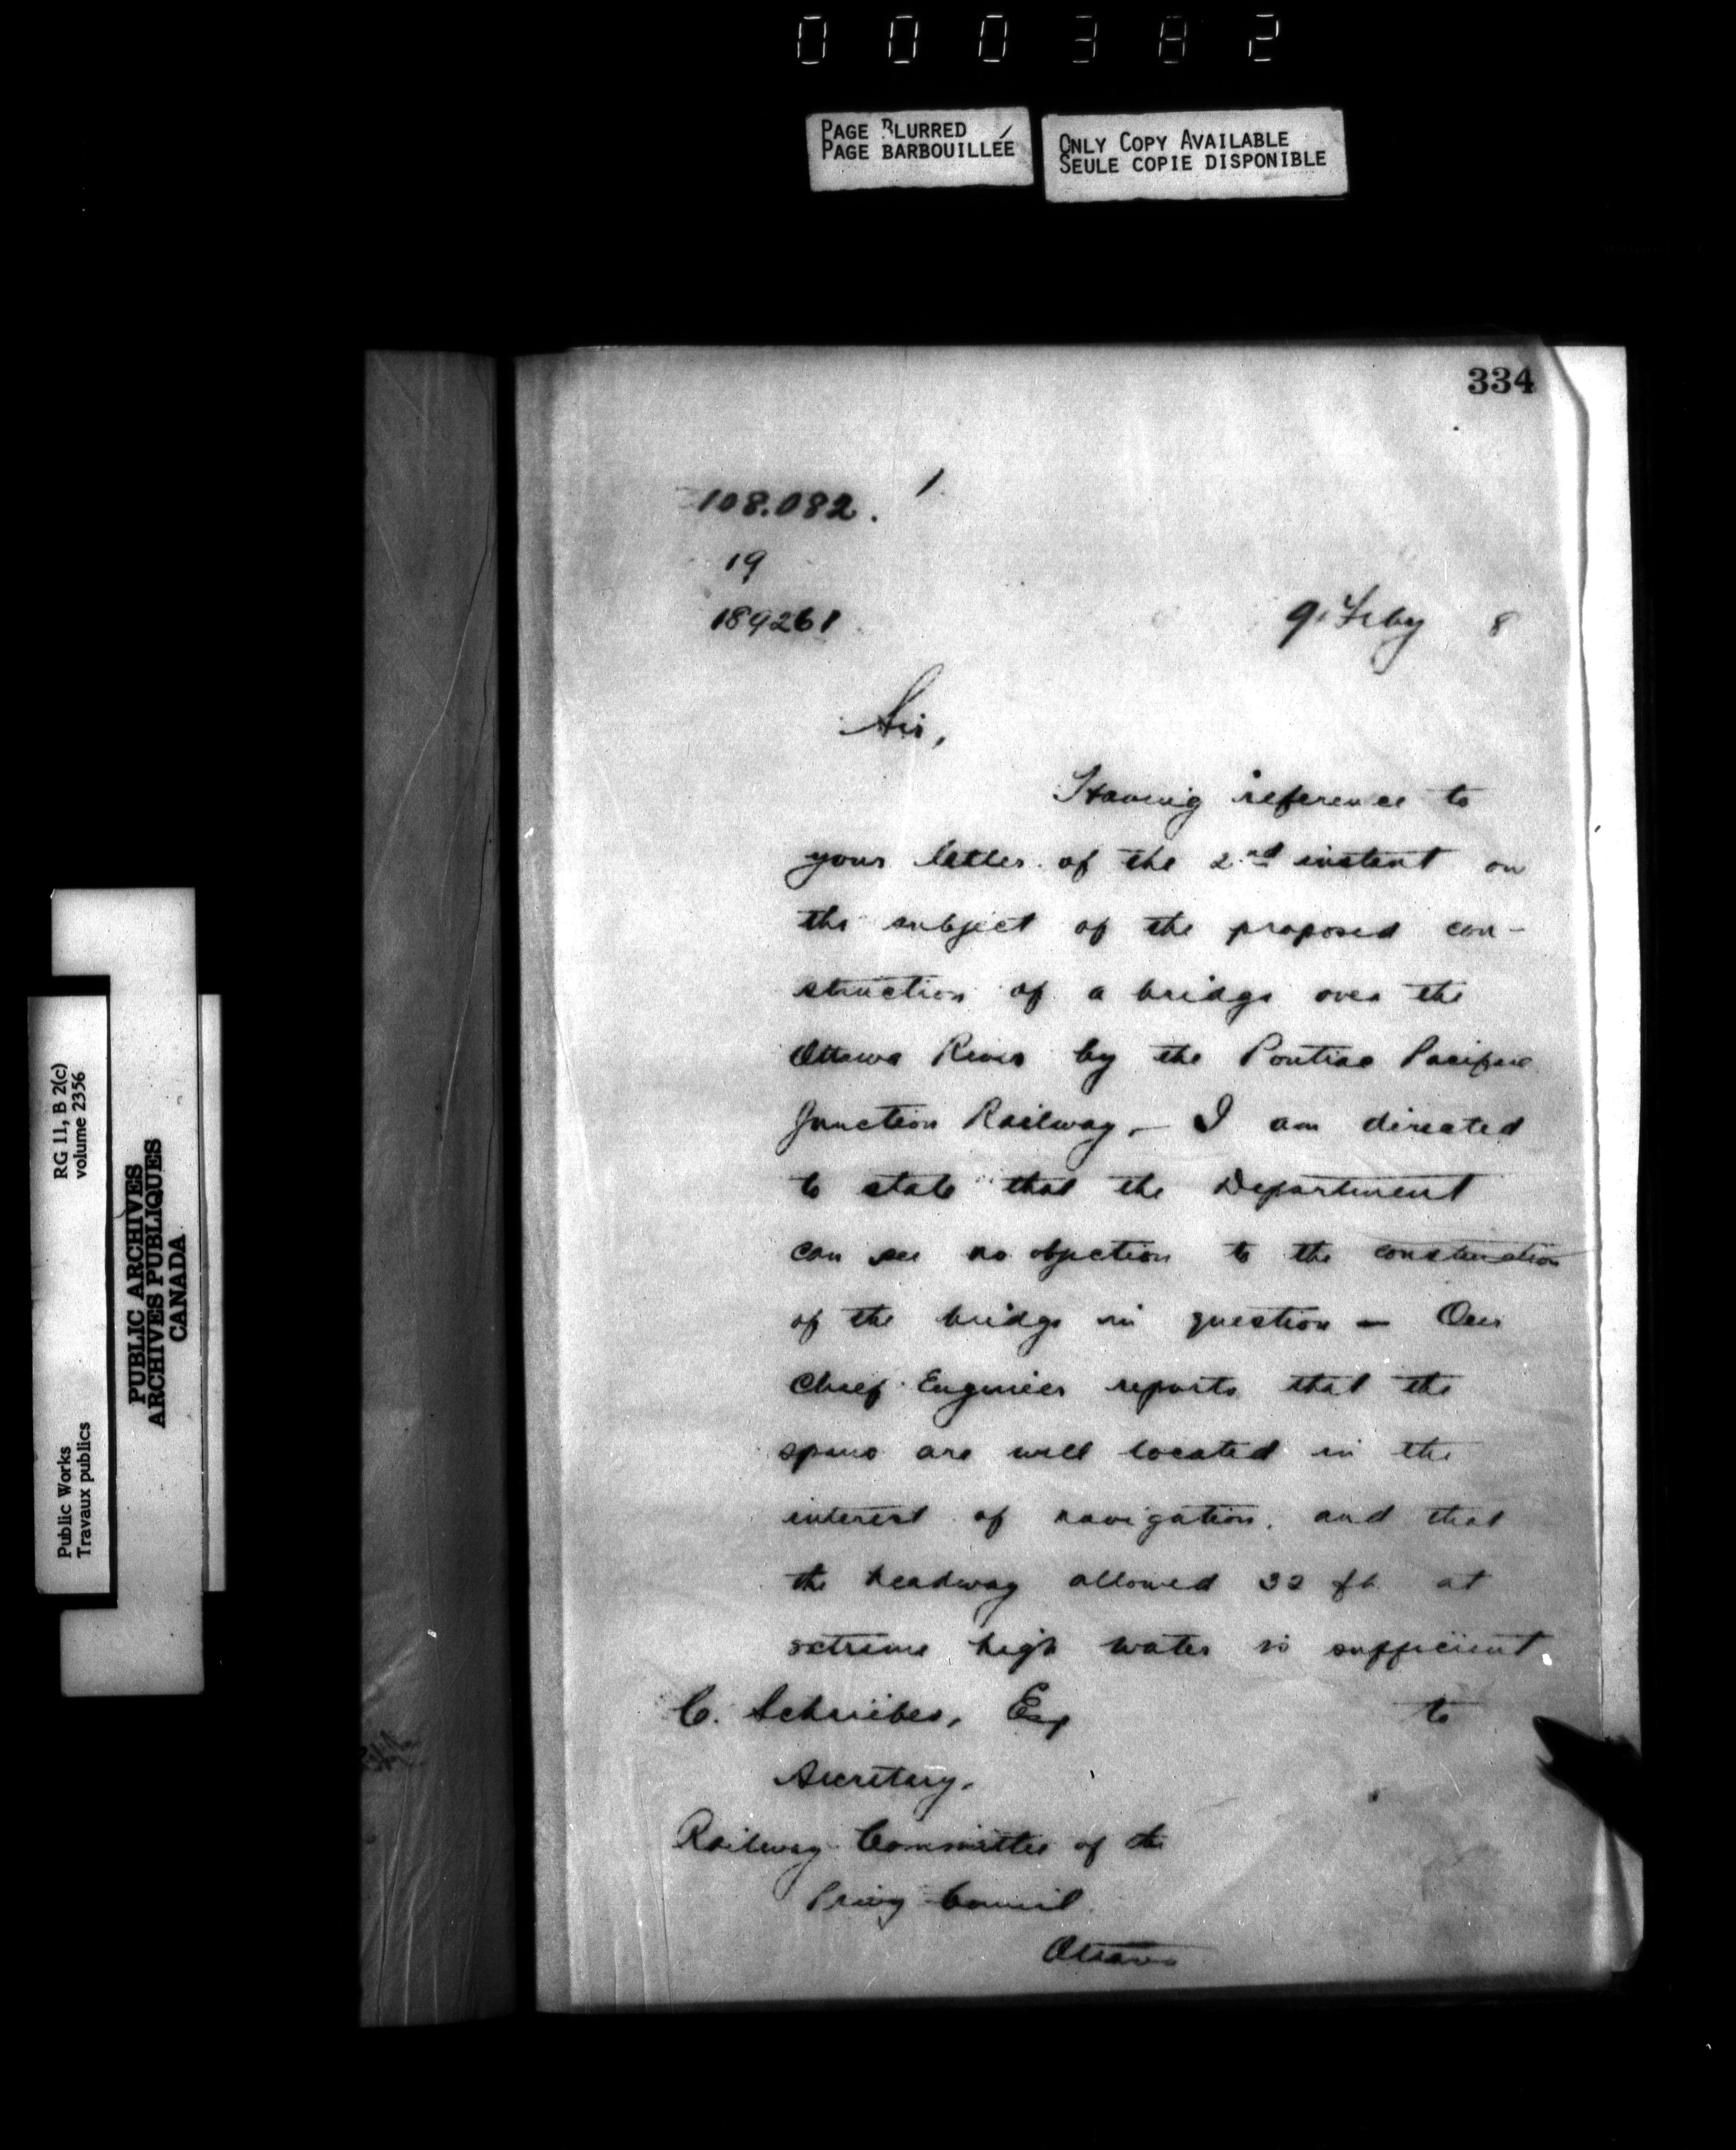 000382
PAGE BLURRED
PAGE BARBOUILLÉE
ONLY COPY AVAILABLE
SEULE COPIE DISPONIBLE
334
1
108.082.
19
189261
9. Feby 8
Sir,
Having reference to
your letter of the 2nd instant on
the subject of the proposed con-
struction of a bridge over the
Ottawa River by the Pontiac Pacific
Junction Railway, — I am directed
to state that the Department
can see no objection to the construction
of the bridge in question — Our
Chief Engineer reports that the
spans are well located in the
interest of navigation, and that
the headway allowed 32 ft. at
extreme high water is sufficient
to
C. Schrieber, Esq
Secretary.
Railway Committee of the
Privy Council.
Ottawa
RG 11, B 2(c)
volume 2356
Public Works
Travaux publics
PUBLIC ARCHIVES
ARCHIVES PUBLIQUES
CANADA